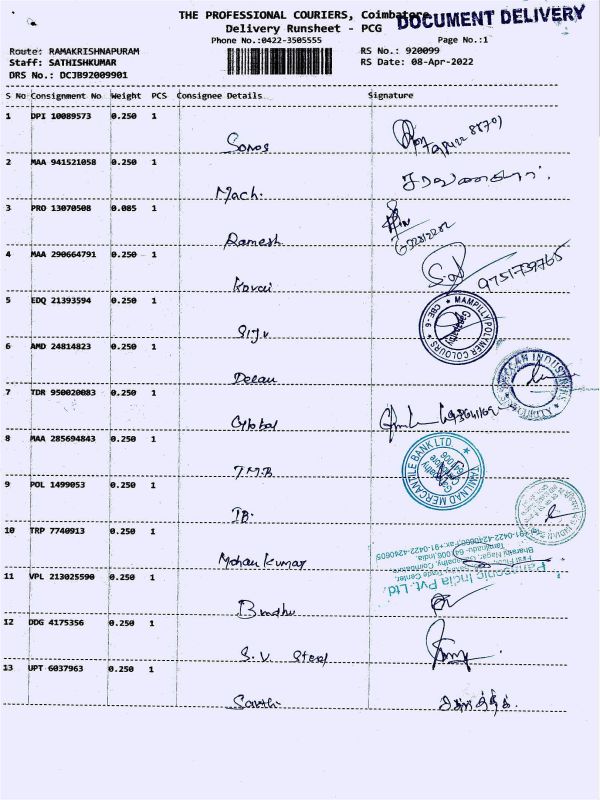 THE PROFESSIONAL COURIERS, Coimbatore
DOCUMENT DELIVERY
Delivery Runsheet - PCG
Phone No.:0422-3505555 Page No.:1
Route: RAMAKRISHNAPURAM RS No.: 920099
Staff: SATHISHKUMAR RS Date: 08-Apr-2022
DRS No.: DCJB92009901
S No Consignment No Weight PCS Consignee Details Signature
1 DPI 10089573 0.250 1
Sonos
2 MAA 941521058 0.250 1
Mach.
3 PRO 13070508 0.085 1
Ramesh
4 MAA 290664791 0.250 1
Kovai 9751739765
5 EDQ 21393594 0.250 1
Siju
MAMPILLY POLYMER COLOURS ★ CBE-6 ★
6 AMD 24814823 0.250 1
Deccan
7 TDR 950020083 0.250 1
Global
8 MAA 285694843 0.250 1
T.M.B
TAMILNAD MERCANTILE BANK LTD
9 POL 1499053 0.250 1
IB.
10 TRP 7740913 0.250 1
Mohan Kumar
Panasonic India Pvt. Ltd.
11 VPL 213025590 0.250 1
Bindhu
12 DDG 4175356 0.250 1
S. V. Steel
13 UPT 6037963 0.250 1